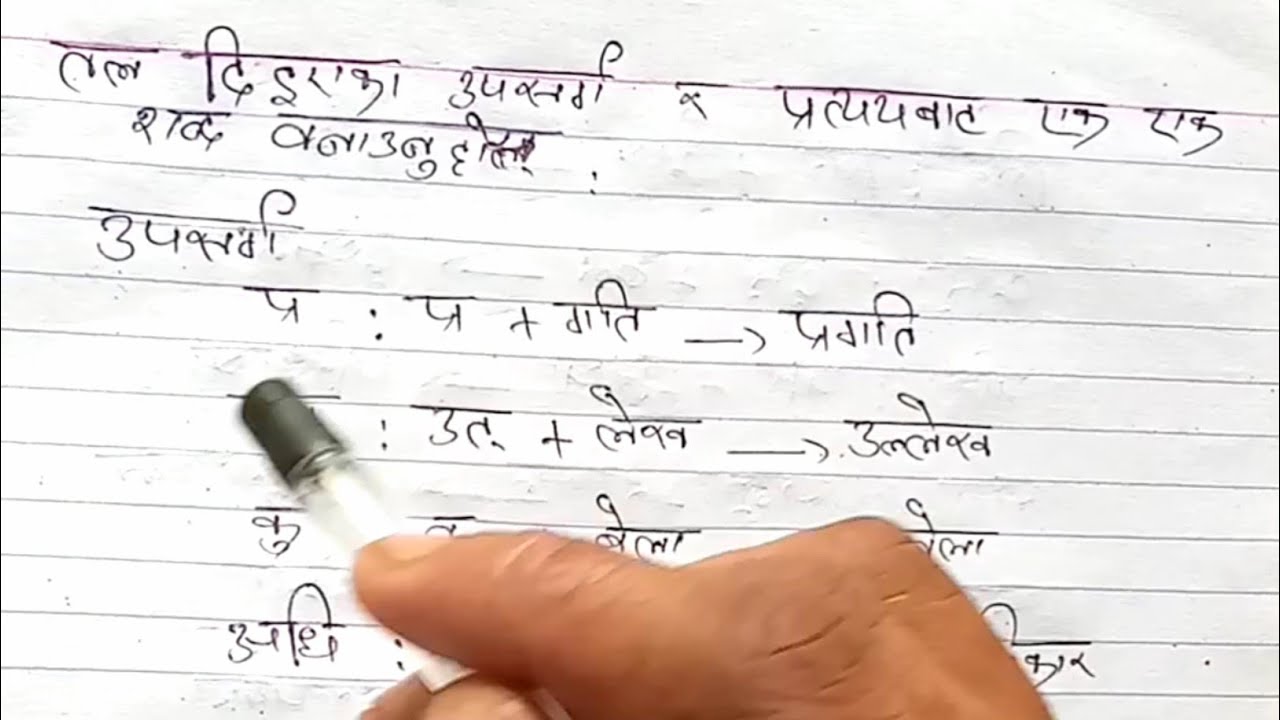 तल दिइएका उपसर्ग र प्रत्ययबाट एक एक
शब्द बनाउनुहोस् :
उपसर्ग
प्र : प्र + गति → प्रगति
: उत् + लेख → उल्लेख
कु बेला
अधि :